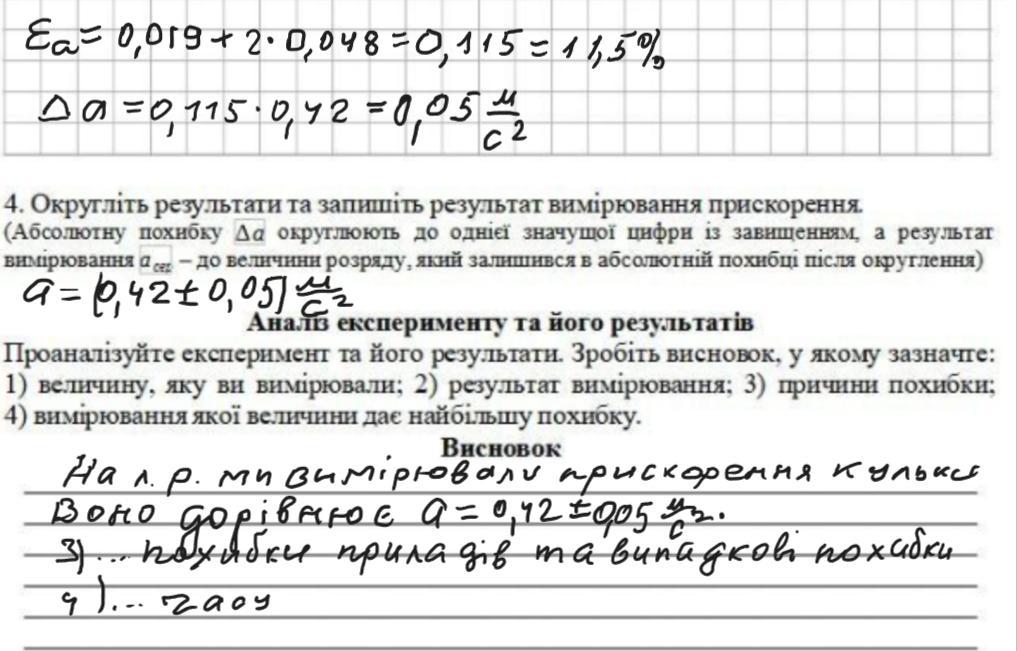 εa = 0,019 + 2·0,048 = 0,115 = 11,5%
Δa = 0,115·0,42 = 0,05 м/с²
4. Округліть результати та запишіть результат вимірювання прискорення.
(Абсолютну похибку Δa округлюють до однієї значущої цифри із завищенням, а результат
вимірювання a сер – до величини розряду, який залишився в абсолютній похибці після округлення)
a = (0,42 ± 0,05) м/с²
Аналіз експерименту та його результатів
Проаналізуйте експеримент та його результати. Зробіть висновок, у якому зазначте:
1) величину, яку ви вимірювали; 2) результат вимірювання; 3) причини похибки;
4) вимірювання якої величини дає найбільшу похибку.
Висновок
На л.р. ми вимірювали прискорення кульки
Воно дорівнює a = 0,42 ± 0,05 м/с².
3)... похибки приладів та випадкові похибки
4)... часу